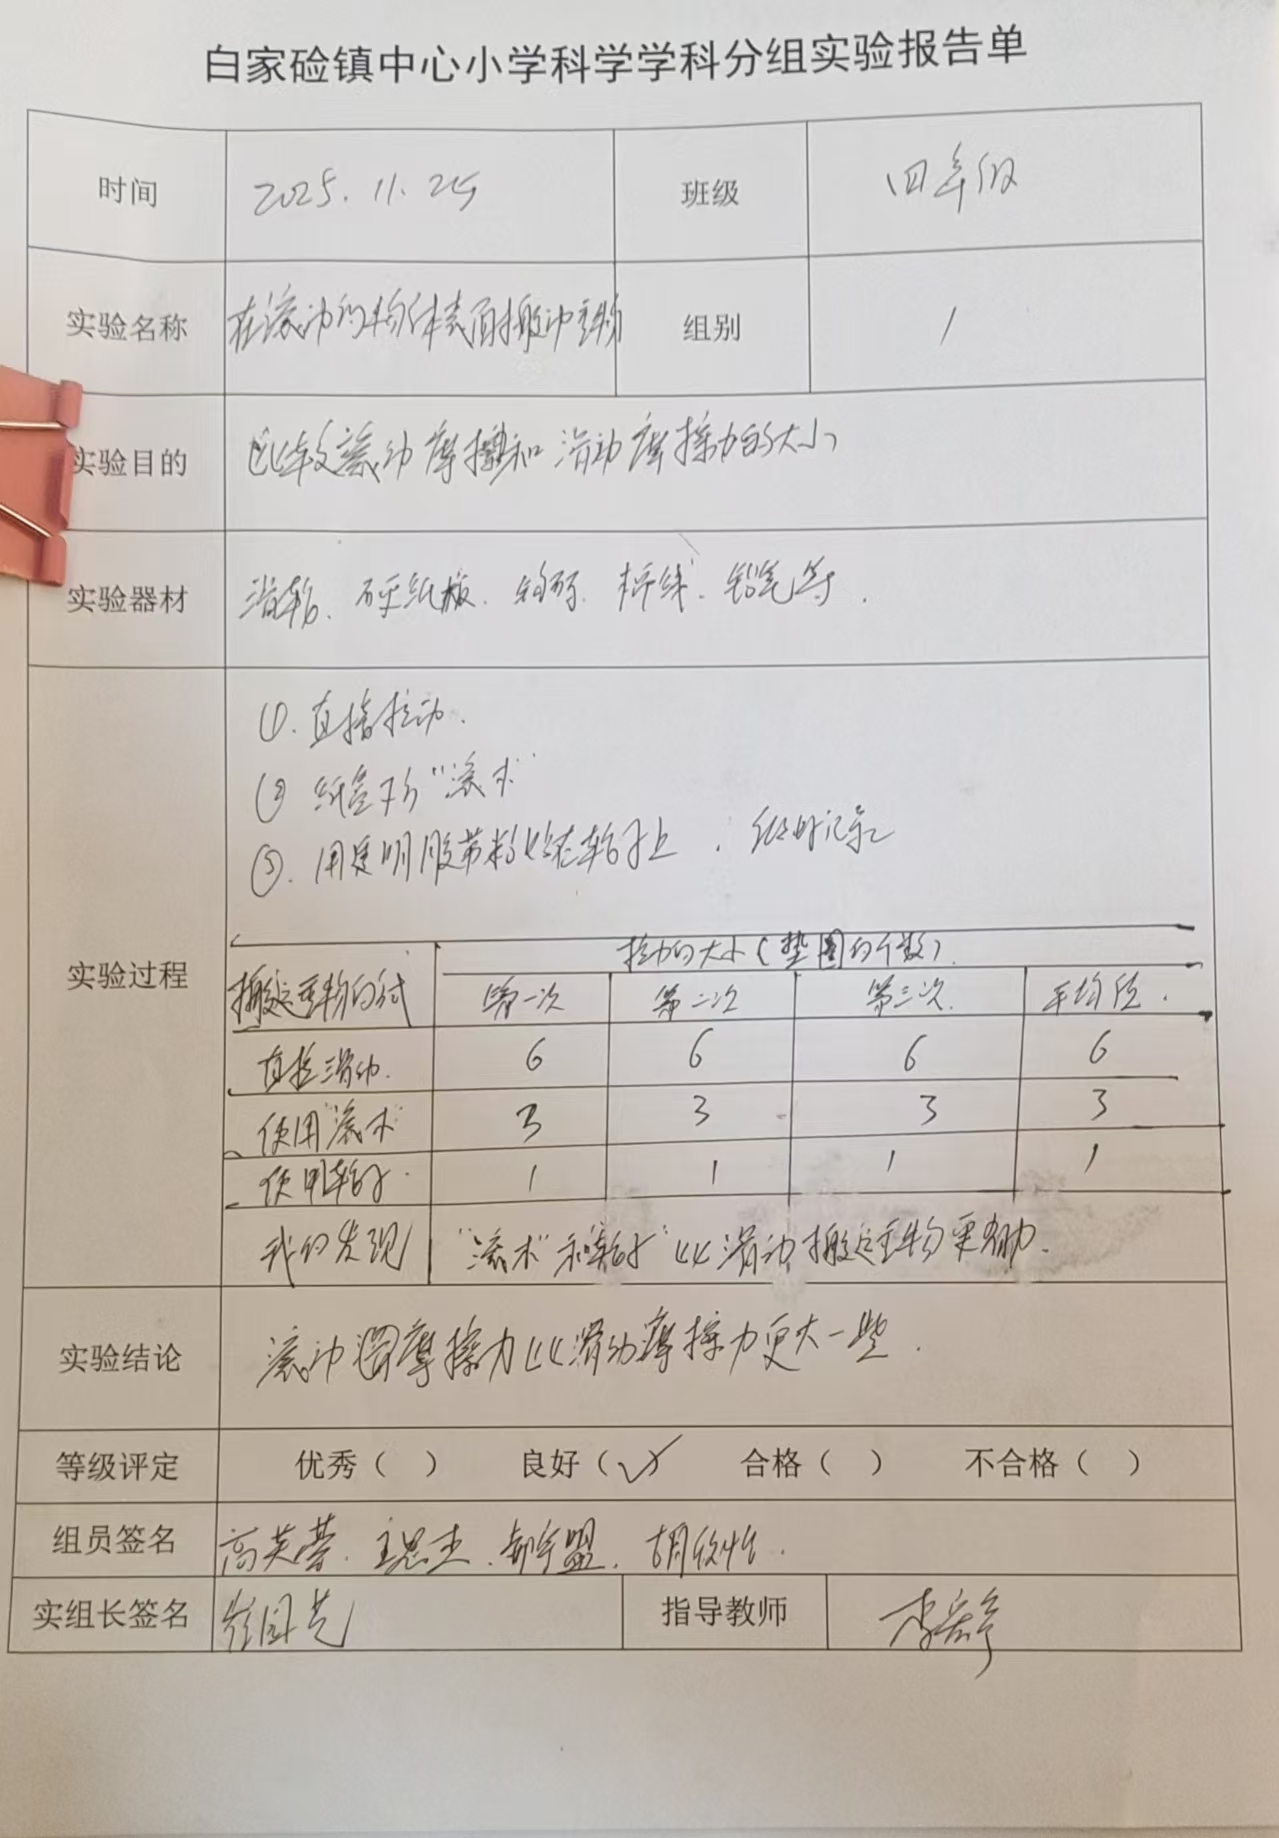 白家硷镇中心小学科学学科分组实验报告单
时间 2025.11.25 班级 四年级
实验名称 在滚动的物体表面搬动重物 组别 1
实验目的 比较滚动摩擦和滑动摩擦力的大小
实验器材 滑轮、硬纸板、钩码、棉线、铅笔等.
实验过程
①.直接拉动.
② 纸盒下 "滚木"
③.用透明胶带粘在轮子上,做好记录
拉力的大小(垫圈的个数).
搬运重物的方式 第一次 第二次 第三次. 平均值.
直接滑动. 6 6 6 6
使用"滚木" 3 3 3 3
使用轮子. 1 1 1 1
我的发现 "滚木"和"轮子"比滑动搬运重物更省力.
实验结论 滚动摩擦力比滑动摩擦力更大一些.
等级评定 优秀( ) 良好(✓) 合格( ) 不合格( )
组员签名 高英
实组长签名 指导教师 李